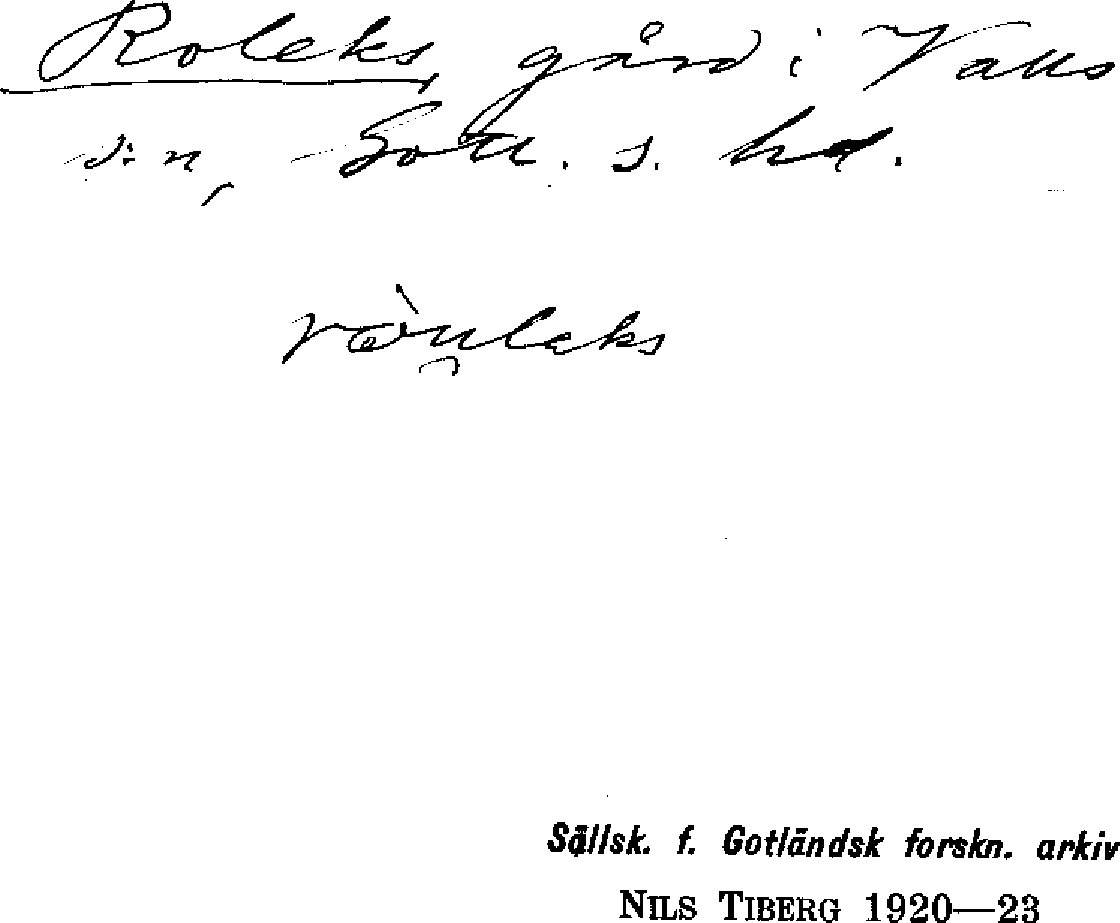 Roleks, gård i Valls
s:n, Gotl. s. hd.
ròu̯laks
Sällsk. f. Gotländsk forskn. arkiv
NILS TIBERG 1920—23